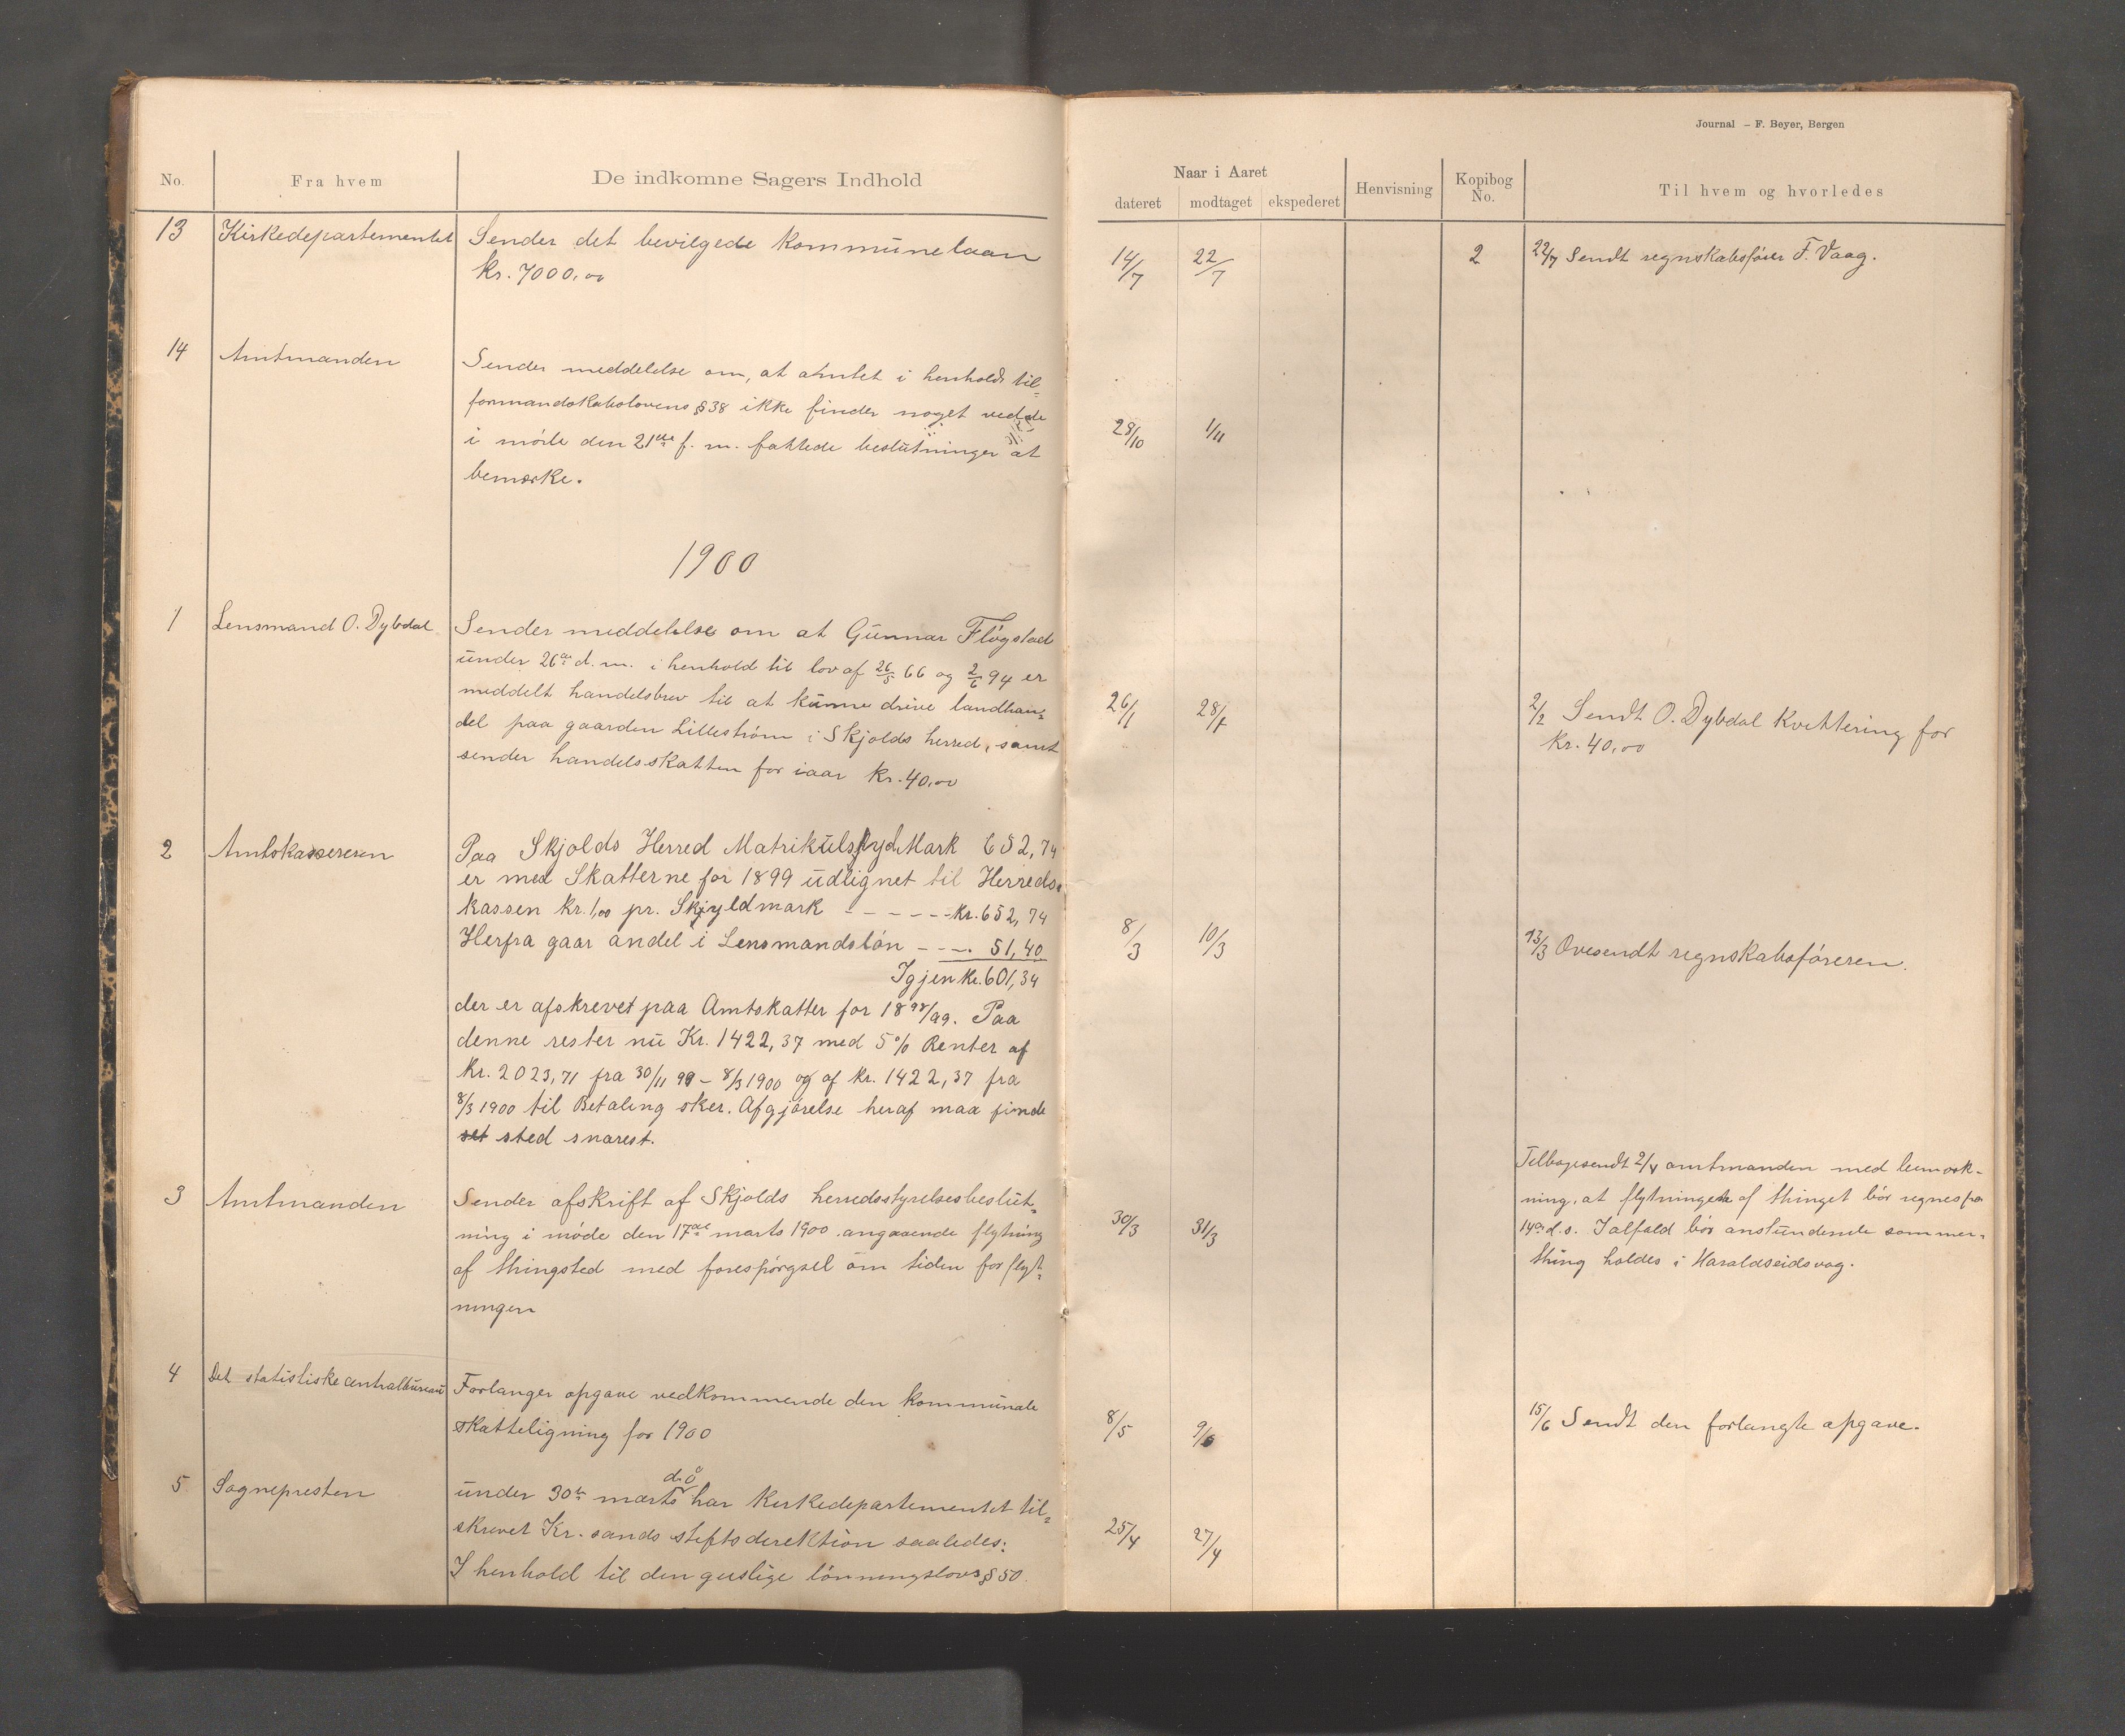 Journal – F. Beyer, Bergen
No. Fra hvem De indkomne Sagers Indhold
Naar i Aaret
dateret modtaget ekspederet Henvisning Kopibog No. Til hvem og hvorledes
13 Kirkedepartementet Sender det bevilgede Kommunelaan
kr. 7000,00
14/7 22/7 2 22/7 Sendt regnskabsfører F. Vaag.
14 Amtmanden Sender meddelelse om, at amtet i henhold til
formandskabslovens § 38 ikke finder noget ved de
i møde den 21de f. m. fattede beslutninger at
bemærke.
28/10 1/11
1900
1 Lensmand O. Dybdal Sender meddelelse om at Gunnar Fløgstad
under 26de d. m. i henhold til lov af 26/5 66 og 2/6 94 er
meddelt handelsbrev til at kunne drive landhan=
del paa gaarden Lillestrøm i Skjolds herred, samt
sender handelsskatten for iaar kr. 40,00
26/1 28/1 2/2 Sendt O. Dybdal Kvittering for
kr. 40,00
2 Amtskassereren Paa Skjolds Herred Matrikulskyld Mark 652,74
er med Skatterne for 1899 udlignet til Herreds=
kassen kr. 1,00 pr. Skyldmark - - - - - - kr. 652,74
Herfra gaar andel i Lensmandsløn - - - . 51,40
Igjen kr. 601,34
der er afskrevet paa Amtskatter for 1898/99. Paa
denne rester nu Kr. 1422,37 med 5% Renter af
kr. 2023,71 fra 30/11 99 – 8/3 1900 og af kr. 1422,37 fra
8/3 1900 til Betaling sker. Afgjørelse heraf maa finde
set sted snarest.
8/3 10/3 13/3 Oversendt regnskabsføreren.
3 Amtmanden Sender afskrift af Skjolds herredsstyrelsesbeslut=
ning i møde den 17de marts 1900 angaaende flytning
af thingsted med forespørgsel om tiden for flyt=
ningen
30/3 31/3 Tilbagesendt 2/4 amtmanden med bemærk-
ning, at flytningen af thinget bør regnes fra
14de d. s. Ialfald bør anstundende sommer=
thing holdes i Haraldseidsvag.
4 Det statistiske centralbureau Forlanger opgave vedkommende den kommunale
skatteligning for 1900
8/5 9/6 15/6 Sendt den forlangte opgave.
5 Sognepresten under 30te marts d. å har Kirkedepartementet til=
skrevet Kr.sands stiftsdirektion saaledes:
I henhold til den geislige lønningslovs § 50
25/4 27/4